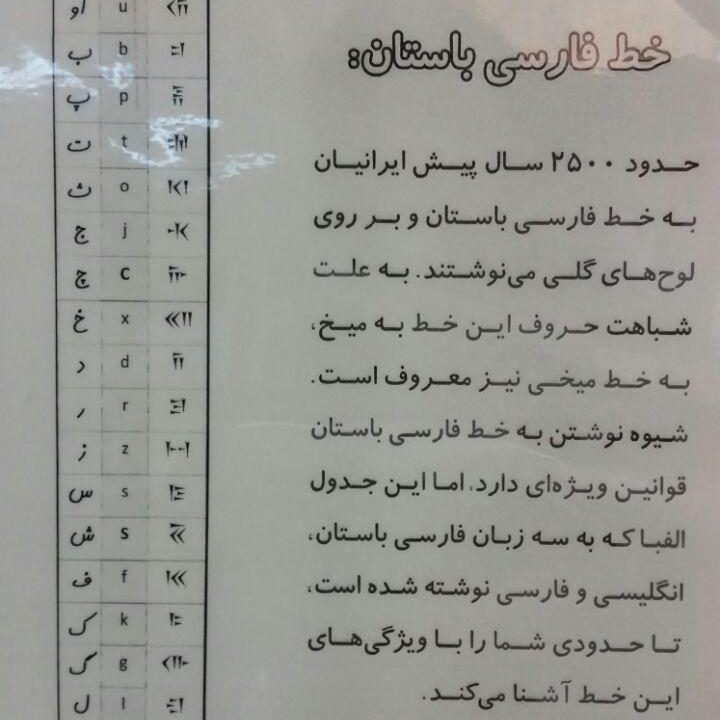 خط فارسی باستان:
حدود ۲۵۰۰ سال پیش ایرانیان
به خط فارسی باستان و بر روی
لوح‌های گلی می‌نوشتند. به علت
شباهت حروف این خط به میخ،
به خط میخی نیز معروف است.
شیوه نوشتن به خط فارسی باستان
قوانین ویژه‌ای دارد. اما این جدول
الفبا که به سه زبان فارسی باستان،
انگلیسی و فارسی نوشته شده است،
تا حدودی شما را با ویژگی‌های
این خط آشنا می‌کند.
u او
b ب
p پ
t ت
o ث
j ج
c چ
x خ
d د
r ر
z ز
s س
s ش
f ف
k ک
g گ
l ل